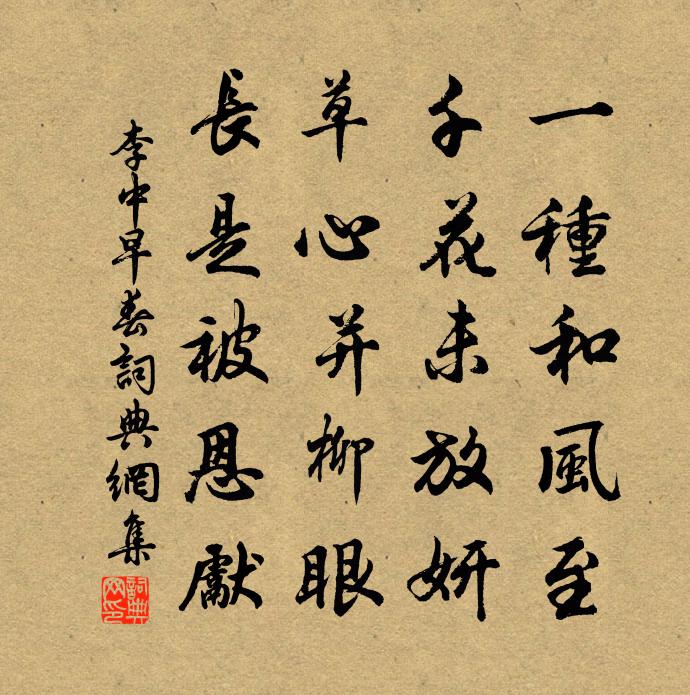 一種和風至
千花未放妍
草心并柳眼
長是被恩獻
李中早春詞典網集
詞典
网印